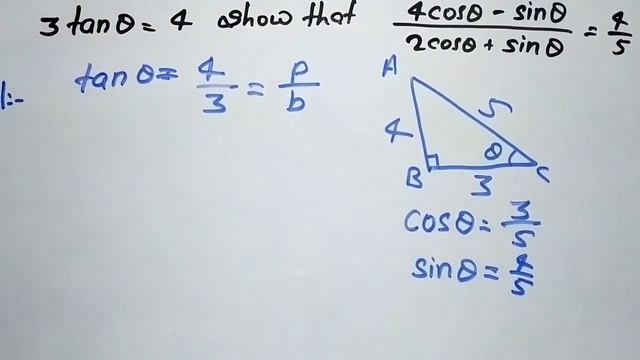 3 tanθ = 4 show that (4cosθ - sinθ)/(2cosθ + sinθ) = 4/5
1:- tanθ = 4/3 = p/b
A
5
4
θ
B
3
C
cosθ = 3/5
sinθ = 4/5